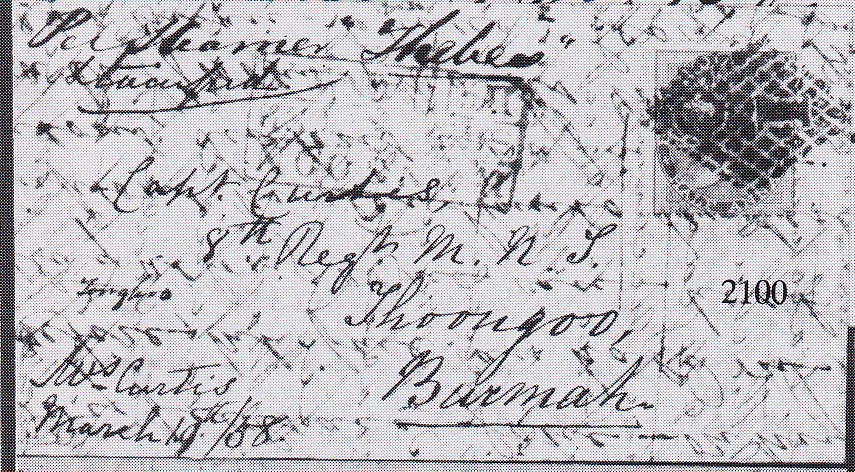 Per Steamer "Thebes"
Capt. Curtis,
8th Regt. M. N. I.
Thoongoo,
2100
Mrs Curtis
Burmah.
March /58.